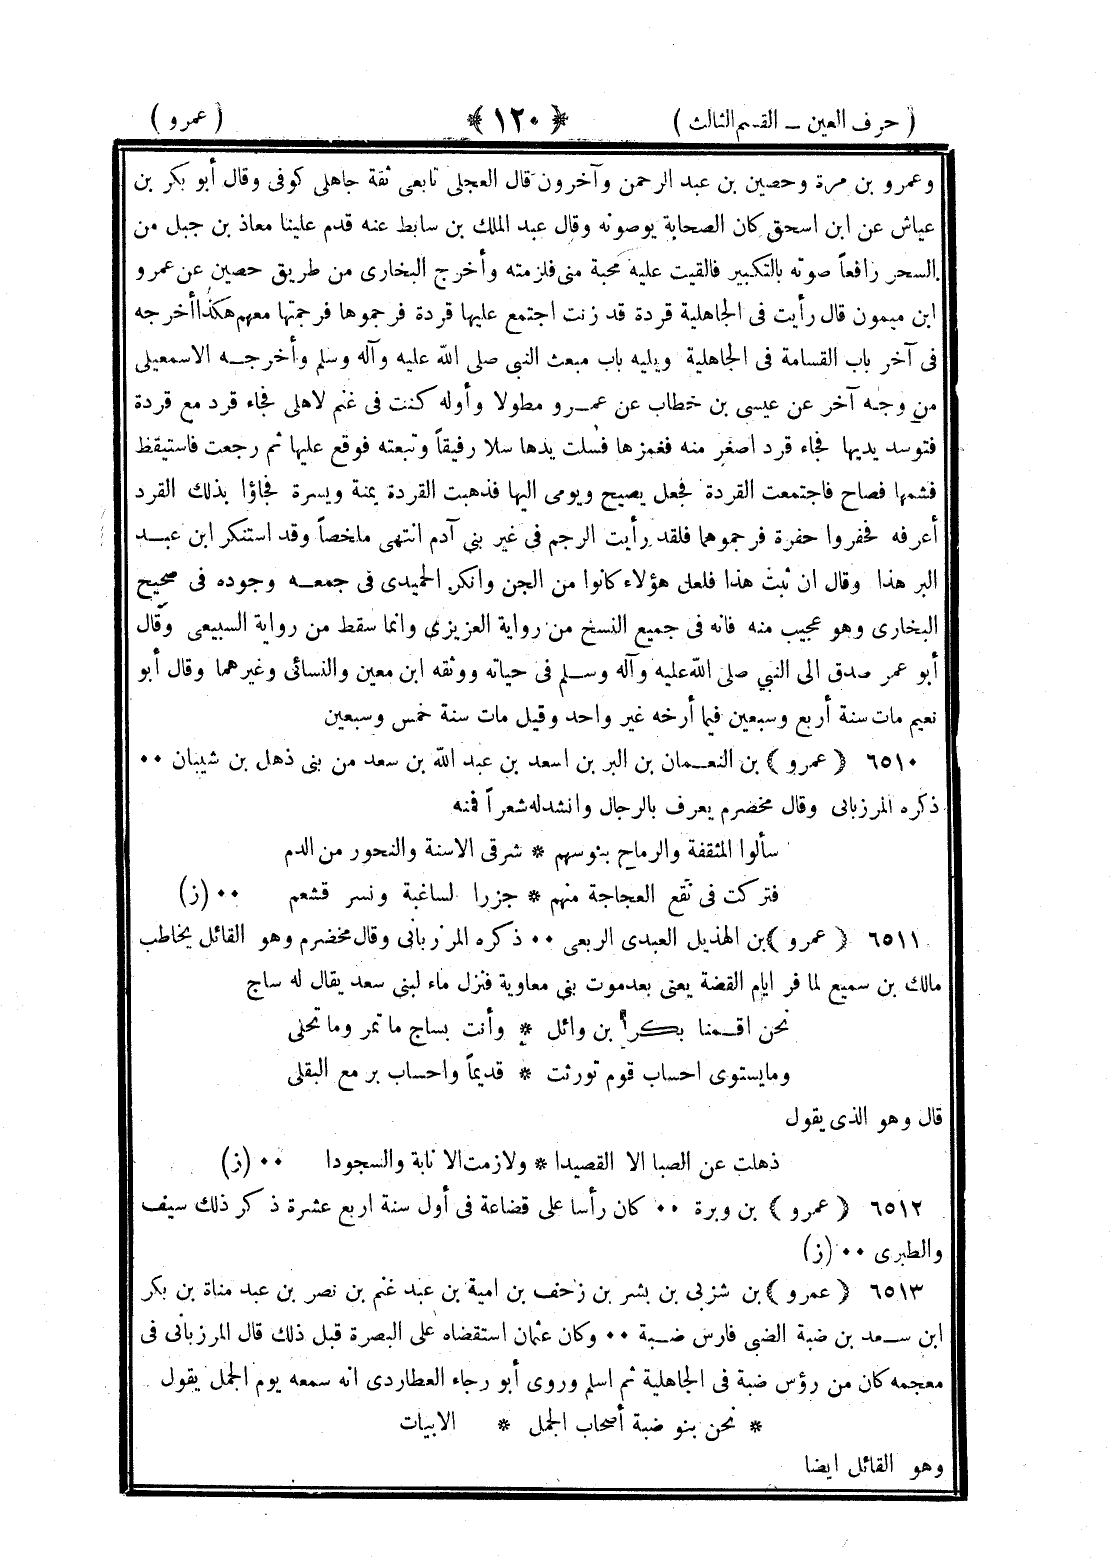 ( حرف العين – القسم الثالث ) ﴿ ١٢٠ ﴾ ( عمرو )
وعمرو بن مرة وحصين بن عبد الرحمن وآخرون قال العجلى تابعى ثقة جاهلى كوفى وقال أبو بكر بن
عياش عن ابن اسحق كان الصحابة يوصونه وقال عبد الملك بن سابط عنه قدم علينا معاذ بن جبل من
السحر رافعاً صوته بالتكبير فالقيت عليه محبة منى فلزمته وأخرج البخارى من طريق حصين عن عمرو
ابن ميمون قال رأيت فى الجاهلية قردة قد زنت اجتمع عليها قردة فرجموها فرجمتها معهم هكذا أخرجه
فى آخر باب القسامة فى الجاهلية ويليه باب مبعث النبى صلى الله عليه وآله وسلم وأخرجه الاسمعيلى
من وجه آخر عن عيسى بن خطاب عن عمرو مطولا وأوله كنت فى غنم لاهلى فجاء قرد مع قردة
فتوسد يديها فجاء قرد اصغر منه فغمزها فسلت يدها سلا رفيقاً وتبعته فوقع عليها ثم رجعت فاستيقظ
فشمها فصاح فاجتمعت القردة فجعل يصيح ويومى اليها فذهبت القردة يمنة ويسرة فجاؤا بذلك القرد
أعرفه فحفروا حفرة فرجموهما فلقد رأيت الرجم فى غير بنى آدم انتهى ملخصاً وقد استنكر ابن عبد
البر هذا وقال ان ثبت هذا فلعل هؤلاء كانوا من الجن وانكر الحميدى فى جمعه وجوده فى صحيح
البخارى وهو عجيب منه فانه فى جميع النسخ من رواية العزيزي وانما سقط من رواية السبيعى وقال
أبو عمر صدق الى النبي صلى الله عليه وآله وسلم فى حياته ووثقه ابن معين والنسائى وغيرهما وقال أبو
نعيم مات سنة أربع وسبعين فيما أرخه غير واحد وقيل مات سنة خمس وسبعين
٦٥١٠ ﴿ عمرو ﴾ بن النعمان بن البر بن اسعد بن عبد الله بن سعد من بنى ذهل بن شيبان ٠٠
ذكره المرزبانى وقال مخضرم يعرف بالرجال وانشد له شعراً فمنه
سألوا المثقفة والرماح بنوسهم * شرقى الاسنة والنحور من الدم
فتركت فى نقع العجاجة منهم * جزرا لساغبة ونسر قشعم ٠٠ (ز)
٦٥١١ ﴿ عمرو ﴾ بن الهذيل العبدى الربعى ٠٠ ذكره المرزبانى وقال مخضرم وهو القائل يخاطب
مالك بن سميع لما فر ايام القضة يعنى بعد موت بني معاوية فنزل ماء لبنى سعد يقال له ساج
نحن اقمنا بكر بن وائل * وأنت بساج ما تمر وما تحلى
وما يستوى احساب قوم تورثت * قديماً واحساب بر مع البقلى
قال وهو الذى يقول
ذهلت عن الصبا الا القصيدا * ولازمت الانابة والسجودا ٠٠ (ز)
٦٥١٢ ﴿ عمرو ﴾ بن وبرة ٠٠ كان رأسا على قضاعة فى أول سنة اربع عشرة ذكر ذلك سيف
والطبرى ٠٠ (ز)
٦٥١٣ ﴿ عمرو ﴾ بن شزبى بن بشر بن زحف بن امية بن عبد غنم بن نصر بن عبد مناة بن بكر
ابن سعد بن ضبة الضبى فارس ضبة ٠٠ وكان عثمان استقضاه على البصرة قبل ذلك قال المرزبانى فى
معجمه كان من رؤس ضبة فى الجاهلية ثم اسلم وروى أبو رجاء العطاردى انه سمعه يوم الجمل يقول
* نحن بنو ضبة أصحاب الجمل * الابيات
وهو القائل ايضا